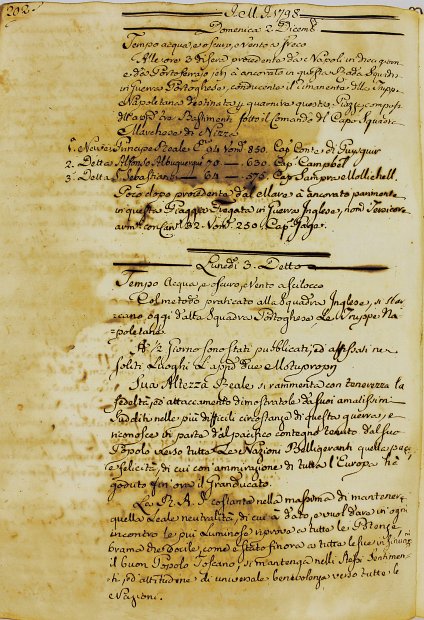 202
A.M.A. 1798
Domenica 2. Dicembe
Tempo acqua, e oscuro, e Vento a freco
Alle ore 3 di sera procedente da Napoli in dieci giorni
e da Portoferraio jeri à ancorato in questa Rada Squadra
in Guerra Portoghese, conducente il rimanente delle Truppe
Napoletane destinate a guarnire queste Piazze composta
di Bastimenti sotto il Comando del Capo Squadra
Marchese di Nizza
1. Nave Principe Reale C. 64 Vom. 850. Cap. Conte di Puysegur
2. Detta Alfonso Albuquerqui 70 — 630. Cap. Campbel
3. Detta S. Sebastiano — 64 — 575. Cap. Sampra e Mitchell.
Poco dopo procedente dal Mare à ancorato parimente
in questa Piaggia Fregata in Guerra Inglese, nom.
arm. con Can. 32. Vom. 250. Cap.
Lunedì 3. Detto
Tempo Acqua, e oscuro, e Vento a scilocco
Col metodo praticato alla Squadra Inglese, si sbar-
cano oggi dalla Squadra Portoghese, Le Truppe Na-
poletane.
A ½ Giorno sono stati pubblicati, ed affissati ne
soliti Luoghi L'appie due Motupropri
Sua Altezza Reale si rammenta con tenerezza la
fedeltà, ed attaccamento dimostratole da suoi amatissimi
Sudditi nelle più difficili circostanze di questa guerra, e
riconosce in parte dal pacifico contegno tenuto dal suo
Popolo verso tutte Le Nazioni Belligeranti quella pace,
e felicità, di cui con ammirazione di tutta l'Europa ha
goduto fin'ora il Granducato.
La R. A. S. costante nella massima di mantenere
quella Leale neutralità, di cui à dato, e vuol dare in ogni
incontro le più Luminose riprove a tutte le Potenze,
brama che docile, come è stato finora a tutte le sue insinuaz.
il buon Popolo Toscano, si mantenga nelli stessi sentimen-
ti, ed attitudine di universale benevolenza verso tutte le
Nazioni.